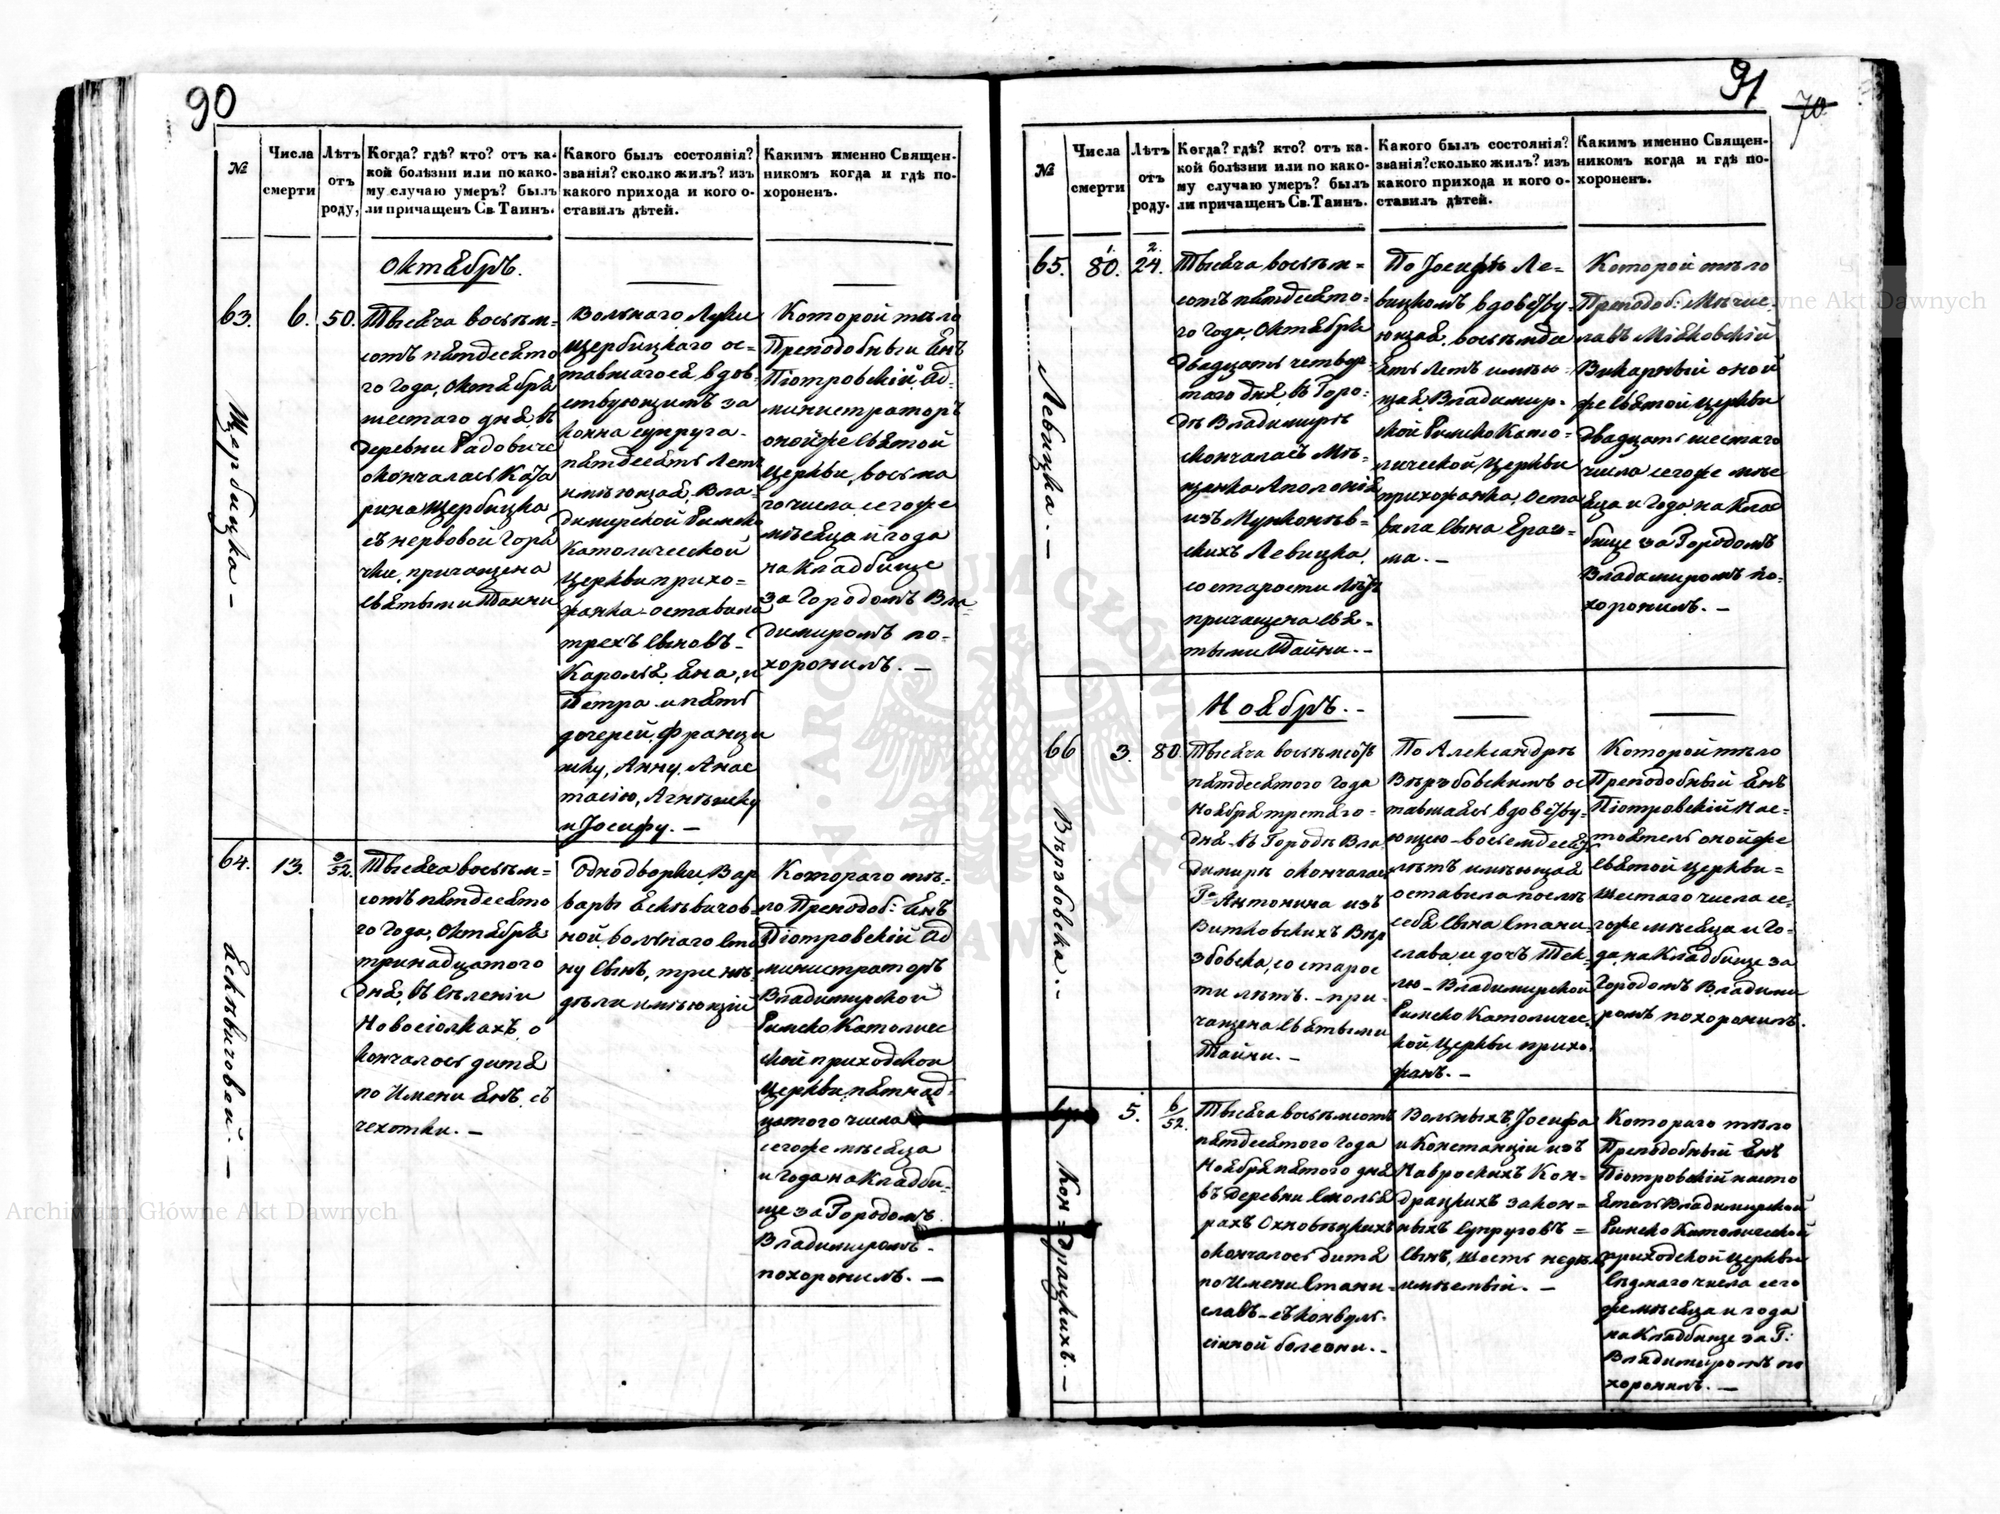 90
№
Числа
смерти
Лѣтъ
отъ
роду,
Когда? гдѣ? кто? отъ ка-
кой болѣзни или по како-
му случаю умеръ? былъ
ли причащенъ Св. Таинъ.
Какого былъ состоянія?
званія? сколко жилъ? изъ
какого прихода и кого о-
ставилъ дѣтей.
Какимъ именно Священ-
никомъ когда и гдѣ по-
хороненъ.
Октябрь.
63.
Щербицка –
6.
50.
Тысяча восьѣм=
сотъ пятдесято
го года, Октября
шестаго дня, въ
деревни
окончалась Ката
рина Щербицка
съ нервовой горя
чки, причащена
Святыми Тайни
Вольнаго Луки
Щербицкаго ос=
тавшагося вдов=
ствующимъ за
конна супруга –
пятдесятъ летъ
имѣющая, Вла-
димирской Римско
Католической
Церкви прихо=
жанка – оставила
трехъ Сыновъ –
Кароля, Яна, и
Петра – и пять
дочерей, Франци
шку, Анну, Анас
тасію, Агнѣшку
и Іосифу. –
Которой тѣло
Преподобный Янъ
Піотровскій Ад-
министраторъ
онойже Святой
Церкви, восьма
го числа сегоже
мѣсяца и года
на Кладбище
за Городомъ Вла-
димиромъ по-
хоронилъ. –
64.
Яскѣвичовей. –
13.
3/52.
Тысяча восьѣм=
сотъ пятдесято
го года, Октября
тринадцатого
дня, въ Селеніи
Новосіолкахъ, о
кончалось дитя
по Имени Янъ, съ
чехотки. –
Однодворки, Вар
вары Яскѣвичов-
ной, вольнаго Ста
ну Сынъ, три не
дѣли имѣющій
Котораго тѣ-
ло Преподоб: Янъ
Піотровскій Ад
министраторъ
Владимирской
Римско Католичес
кой приходской
Церкви, пятнад
цатого числа
сегоже мѣсяца
и года на Кладби-
ще за Городомъ
Владимиромъ –
похоронилъ. –
91
70
№
Числа
смерти
Лѣтъ
отъ
роду.
Когда? гдѣ? кто? отъ ка-
кой болѣзни или по како-
му случаю умеръ? былъ
ли причащенъ Св. Таинъ.
Какого былъ состоянія?
званія? сколько жилъ? изъ
какого прихода и кого о-
ставилъ дѣтей.
Какимъ именно Священ-
никомъ когда и гдѣ по-
хороненъ.
65.
Левицка. –
1.
80.
2.
24.
Тысяча восьѣм=
сотъ пятдесято-
го года, Октября
двадцать четвер-
таго дня въ Горо-
дѣ Владимирѣ
скончалась Мѣ-
щанка Аполонія
изъ
скихъ Левицка,
со старости лѣтъ
причащена Свя-
тыми Тайни. –
По Іосифѣ Ле-
вицкомъ вдовству-
ющая, восьмьдес
ять летъ имѣю-
щая, Владимир-
ской Римско Като-
лической Церкви
прихожанка, Оста
вила Сына Ераз-
ма. –
Которой тѣло
Преподоб: Мѣчис
лавъ
Викарный оной
же Святой Церкви
двадцать шестаго
числа сегоже мѣс
яца и года на Клад
бище за Городомъ
Владимиромъ по-
хоронилъ. –
Ноябрь. –
66
Вержбовска. –
3.
80.
Тысяча восьѣмсотъ
пятдесятого года
Ноября третяго –
дня – въ Городѣ Вла-
димирѣ окончалась
Га Антонина изъ
Витковскихъ Вер
збовска, со старос
ти лѣтъ. – при-
чащена Святыми
Тайни. –
По Александрѣ
Вержбовскимъ ос
тавшаяся вдовству-
ющею – восемдесятъ
лѣтъ имѣющая
оставила послѣ
себя Сына Стани-
слава, и дочъ Тек-
лю – Владимирской
Римско Католичес-
кой Церкви прихо-
жанъ. –
Которой тѣло
Преподобный Янъ
Піотровскій Нас-
тоятель онойже
Святой Церкви=
Шестаго числа се-
гоже мѣсяца и Го-
да, на Кладбище за
Городомъ Владими
ромъ похоронилъ.
67
Кон=драцкихъ. –
5.
6/52.
Тысяча восьѣмсотъ
пятдесятого года
Ноября пятого дня
въ деревни Смоля
рахъ
окончалось дитя
по Имени Стани-
славъ – съ конвуль-
сіиной болезни. –
Вольныхъ, Іосифа
и Констанціи изъ
Навроскихъ Кон-
драцкихъ закон-
ныхъ Супруговъ =
Сынъ, шость недѣль
имѣвшій. –
Котораго тѣло
Преподобный Янъ
Піотровскій насто
ятель Владимирской
Римско Католической
приходской Церкви
Седмаго числа сего
же мѣсяца и года
на Кладбище за Г:
Владимиромъ по
хоронилъ. –
Archiwum Główne Akt Dawnych